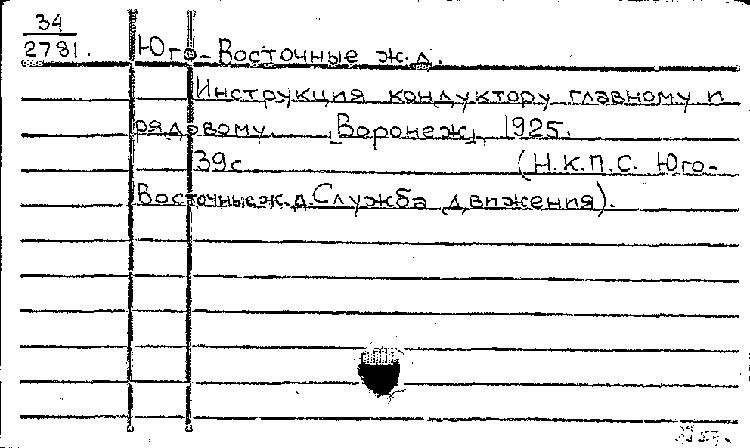 34
2781.
Юго-Восточные ж.д.
Инструкция кондуктору главному и
рядовому. [Воронеж], 1925.
39с. (Н.К.П.С. Юго-
Восточные ж.д. Служба движения).